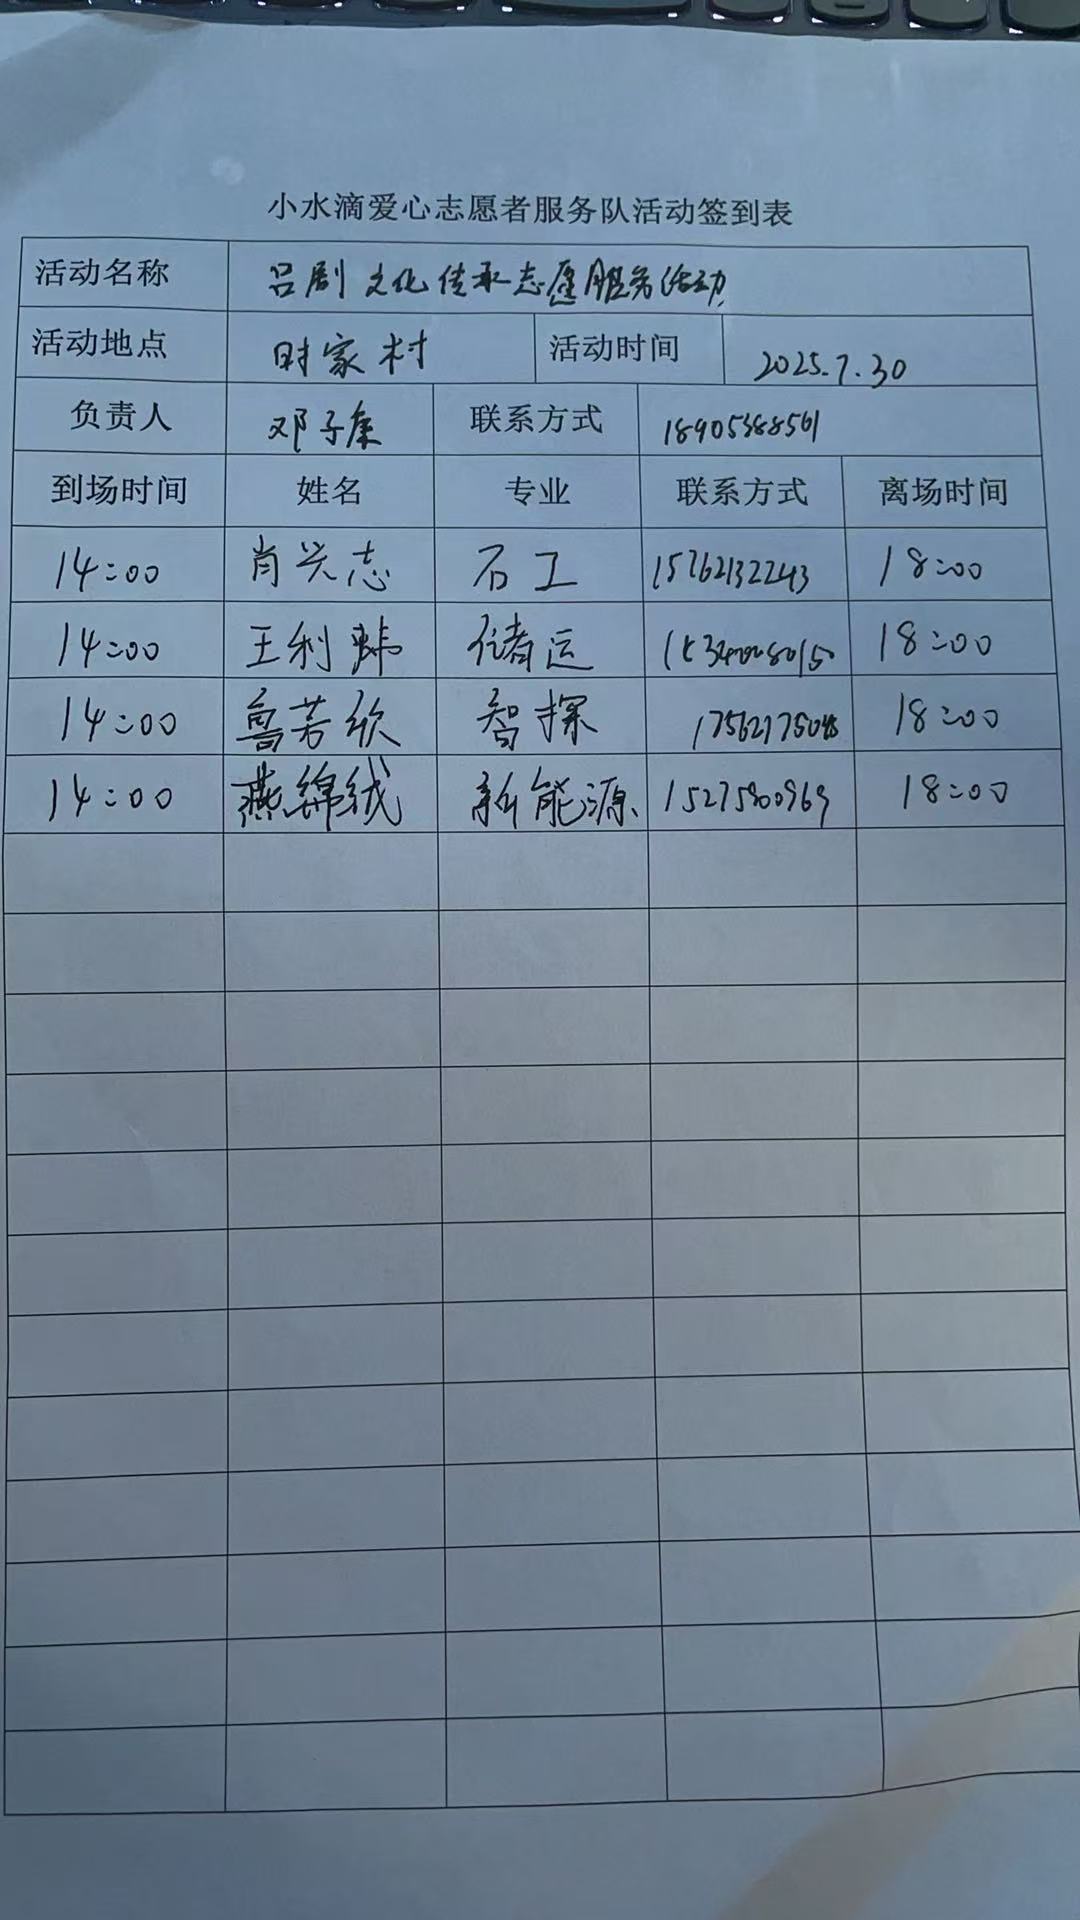 小水滴爱心志愿者服务队活动签到表
活动名称 吕剧文化传承志愿服务活动
活动地点 时家村 活动时间 2025.7.30
负责人 邓子康 联系方式 18905388561
到场时间 姓名 专业 联系方式 离场时间
14:00 肖兴志 石工 15762132243 18:00
14:00 王利 储运 18:00
14:00 鲁芳欣 智探 18:00
14:00 燕绵绒 新能源 15275800969 18:00